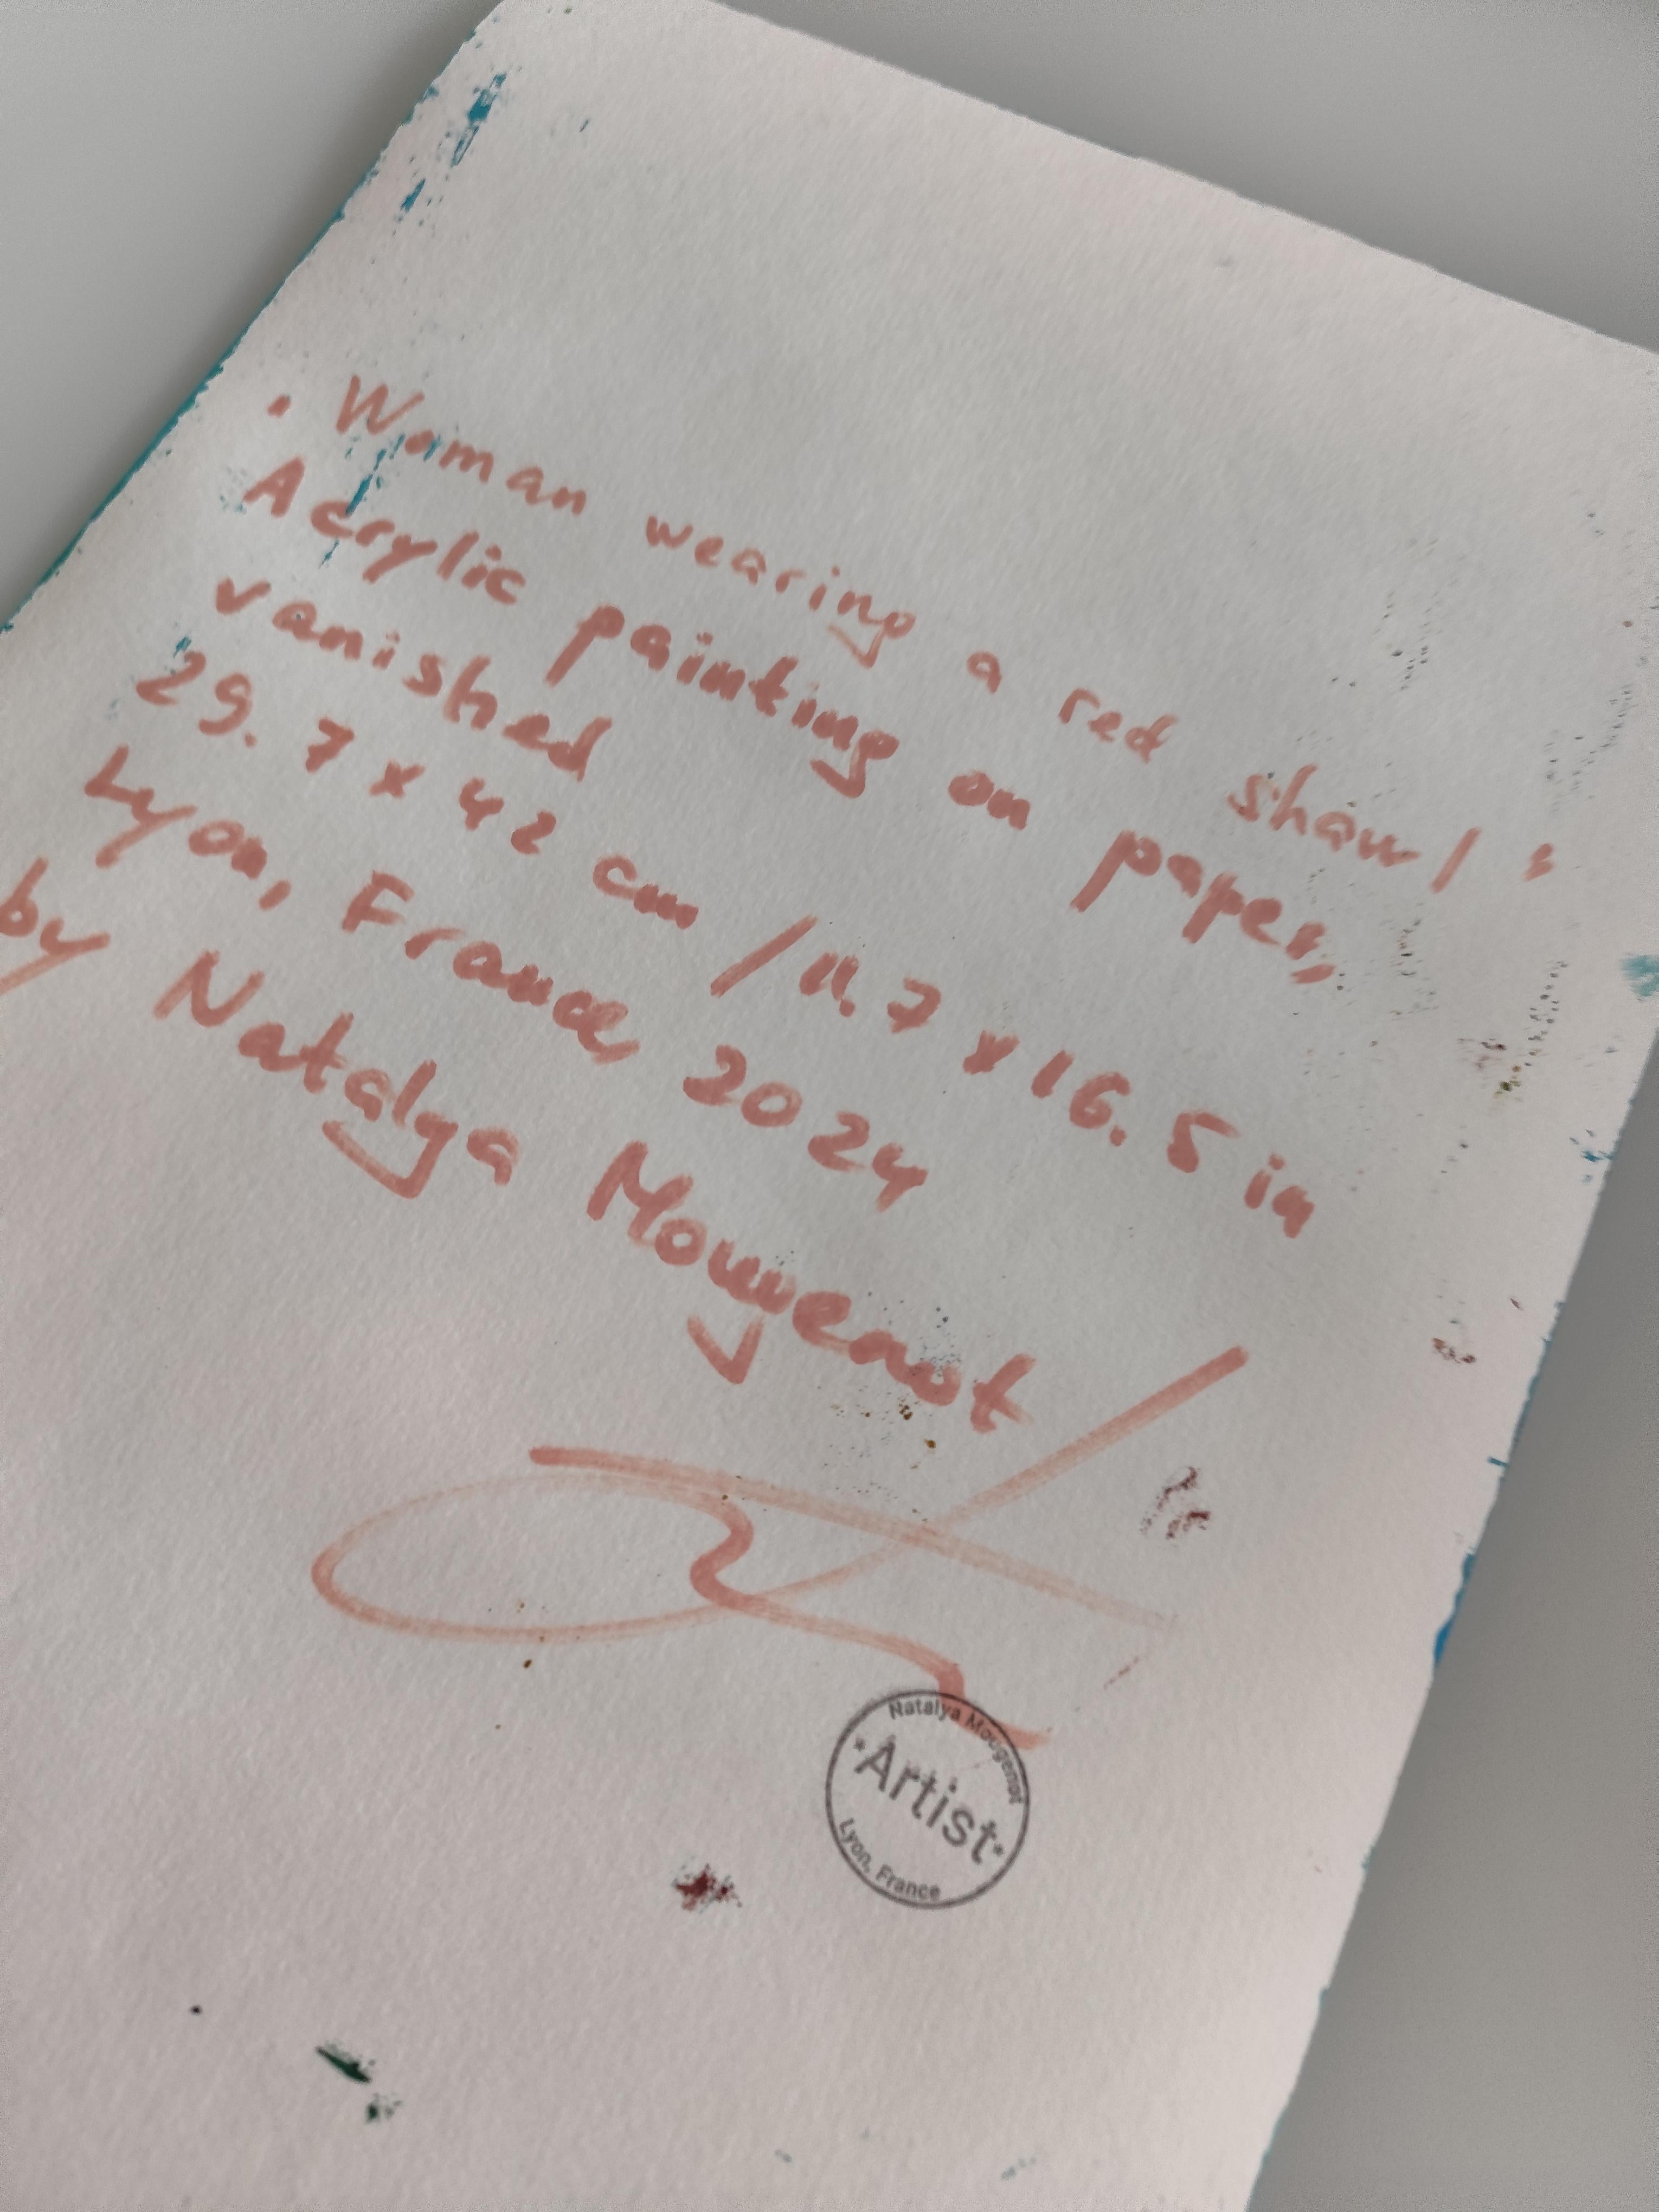 "Woman wearing a red shawl"
Acrylic painting on paper,
vanished
29.7 x 42 cm / 11.7 x 16.5 in
Lyon, France, 2024
by Natalya Mougenot
Natalya Mougenot
*Artist*
Lyon, France